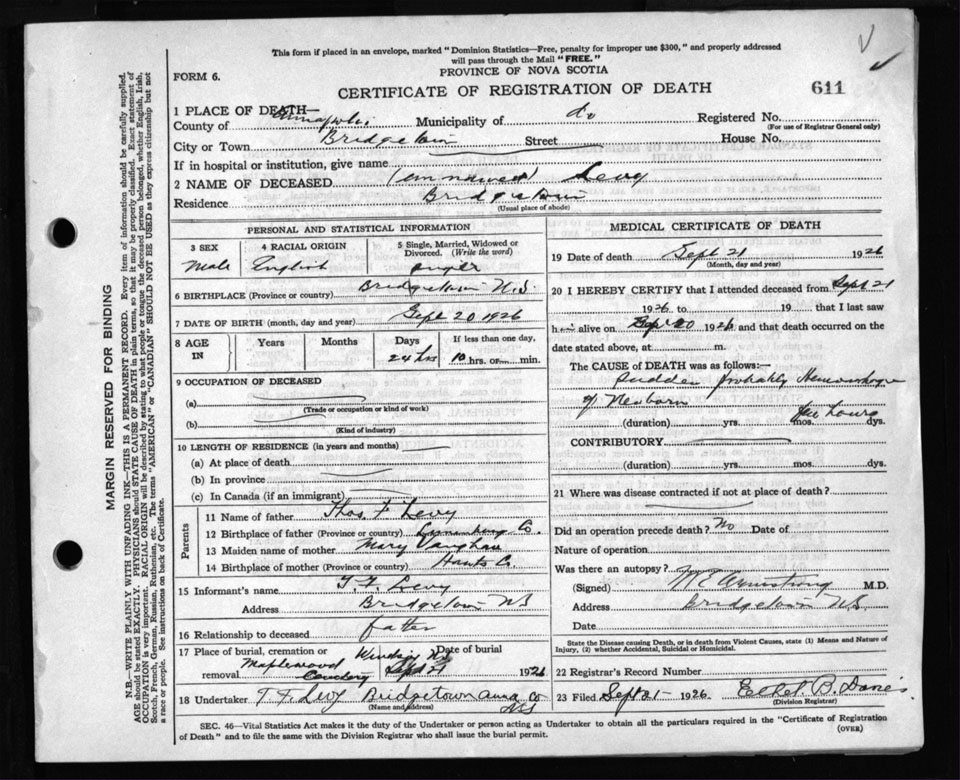 This form if placed in an envelope, marked "Dominion Statistics—Free, penalty for improper use $300," and properly addressed
will pass through the Mail "FREE."
PROVINCE OF NOVA SCOTIA
FORM 6.
CERTIFICATE OF REGISTRATION OF DEATH
611
1 PLACE OF DEATH—
County of Annapolis Municipality of do Registered No.
(For use of Registrar General only)
City or Town Bridgetown Street House No.
If in hospital or institution, give name
2 NAME OF DECEASED (unnamed) Levy
Residence Bridgetown
(Usual place of abode)
PERSONAL AND STATISTICAL INFORMATION
3 SEX 4 RACIAL ORIGIN 5 Single, Married, Widowed or Divorced. (Write the word)
Male English Single
6 BIRTHPLACE (Province or country) Bridgetown N.S.
7 DATE OF BIRTH (month, day and year) Sept 20 1926
8 AGE IN Years Months Days If less than one day,
24 hrs 10 hrs. or min.
9 OCCUPATION OF DECEASED
(a)
(Trade or occupation or kind of work)
(b)
(Kind of industry)
10 LENGTH OF RESIDENCE (in years and months)
(a) At place of death
(b) In province
(c) In Canada (if an immigrant)
Parents
11 Name of father Thos. F Levy
12 Birthplace of father (Province or country) Lunenburg Co.
13 Maiden name of mother Mary Vaughan
14 Birthplace of mother (Province or country) Hants Co
15 Informant's name T. F. Levy
Address Bridgetown NS
16 Relationship to deceased father
17 Place of burial, cremation or removal Maplewood Cemetery Windsor NS Date of burial Sept 21 1926
18 Undertaker T. F. Levy Bridgetown Anna Co NS
(Name and address)
MEDICAL CERTIFICATE OF DEATH
19 Date of death Sept 21 1926
(Month, day and year)
20 I HEREBY CERTIFY that I attended deceased from Sept 21
1926 to 19 that I last saw
h alive on Sept 20 1926 and that death occurred on the
date stated above, at m.
The CAUSE OF DEATH was as follows:—
Sudden probably Hemorrhage
of Newborn
(duration) yrs. mos. dys. hours
CONTRIBUTORY
(duration) yrs. mos. dys.
21 Where was disease contracted if not at place of death?
Did an operation precede death? No Date of
Nature of operation
Was there an autopsy?
(Signed) M E Armstrong M.D.
Address Bridgetown NS
Date
State the Disease causing Death, or in death from Violent Causes, state (1) Means and Nature of
Injury, (2) whether Accidental, Suicidal or Homicidal.
22 Registrar's Record Number
23 Filed Sept 21- 1926 Ethel. B. Davies
(Division Registrar)
SEC. 46—Vital Statistics Act makes it the duty of the Undertaker or person acting as Undertaker to obtain all the particulars required in the "Certificate of Registration
of Death" and to file the same with the Division Registrar who shall issue the burial permit.
(OVER)
MARGIN RESERVED FOR BINDING
N.B.—WRITE PLAINLY WITH UNFADING INK—THIS IS A PERMANENT RECORD. Every item of information should be carefully supplied.
AGE should be stated EXACTLY. PHYSICIANS should STATE CAUSE OF DEATH in plain terms, so that it may be properly classified. Exact statement of
OCCUPATION is very important. RACIAL ORIGIN will be described by stating to what people or tongue the deceased person belonged, whether English, Irish,
Scotch, French, German, Russian, Ruthenian, etc. The terms "AMERICAN" or "CANADIAN" SHOULD NOT BE USED as they express citizenship but not
a race or people. See instructions on back of Certificate.